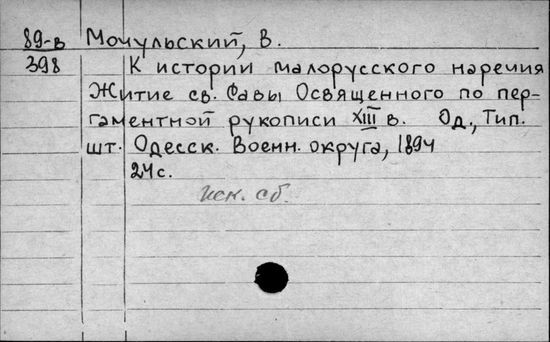 89-в Мочульский, В.
398 К истории малорусского наречия
Житие св. Савы Освященного по пер-
гаментной рукописи XIII в. Од., Тип.
шт. Одесск. Военн. округа, 1894
24 с.
иск. сб.